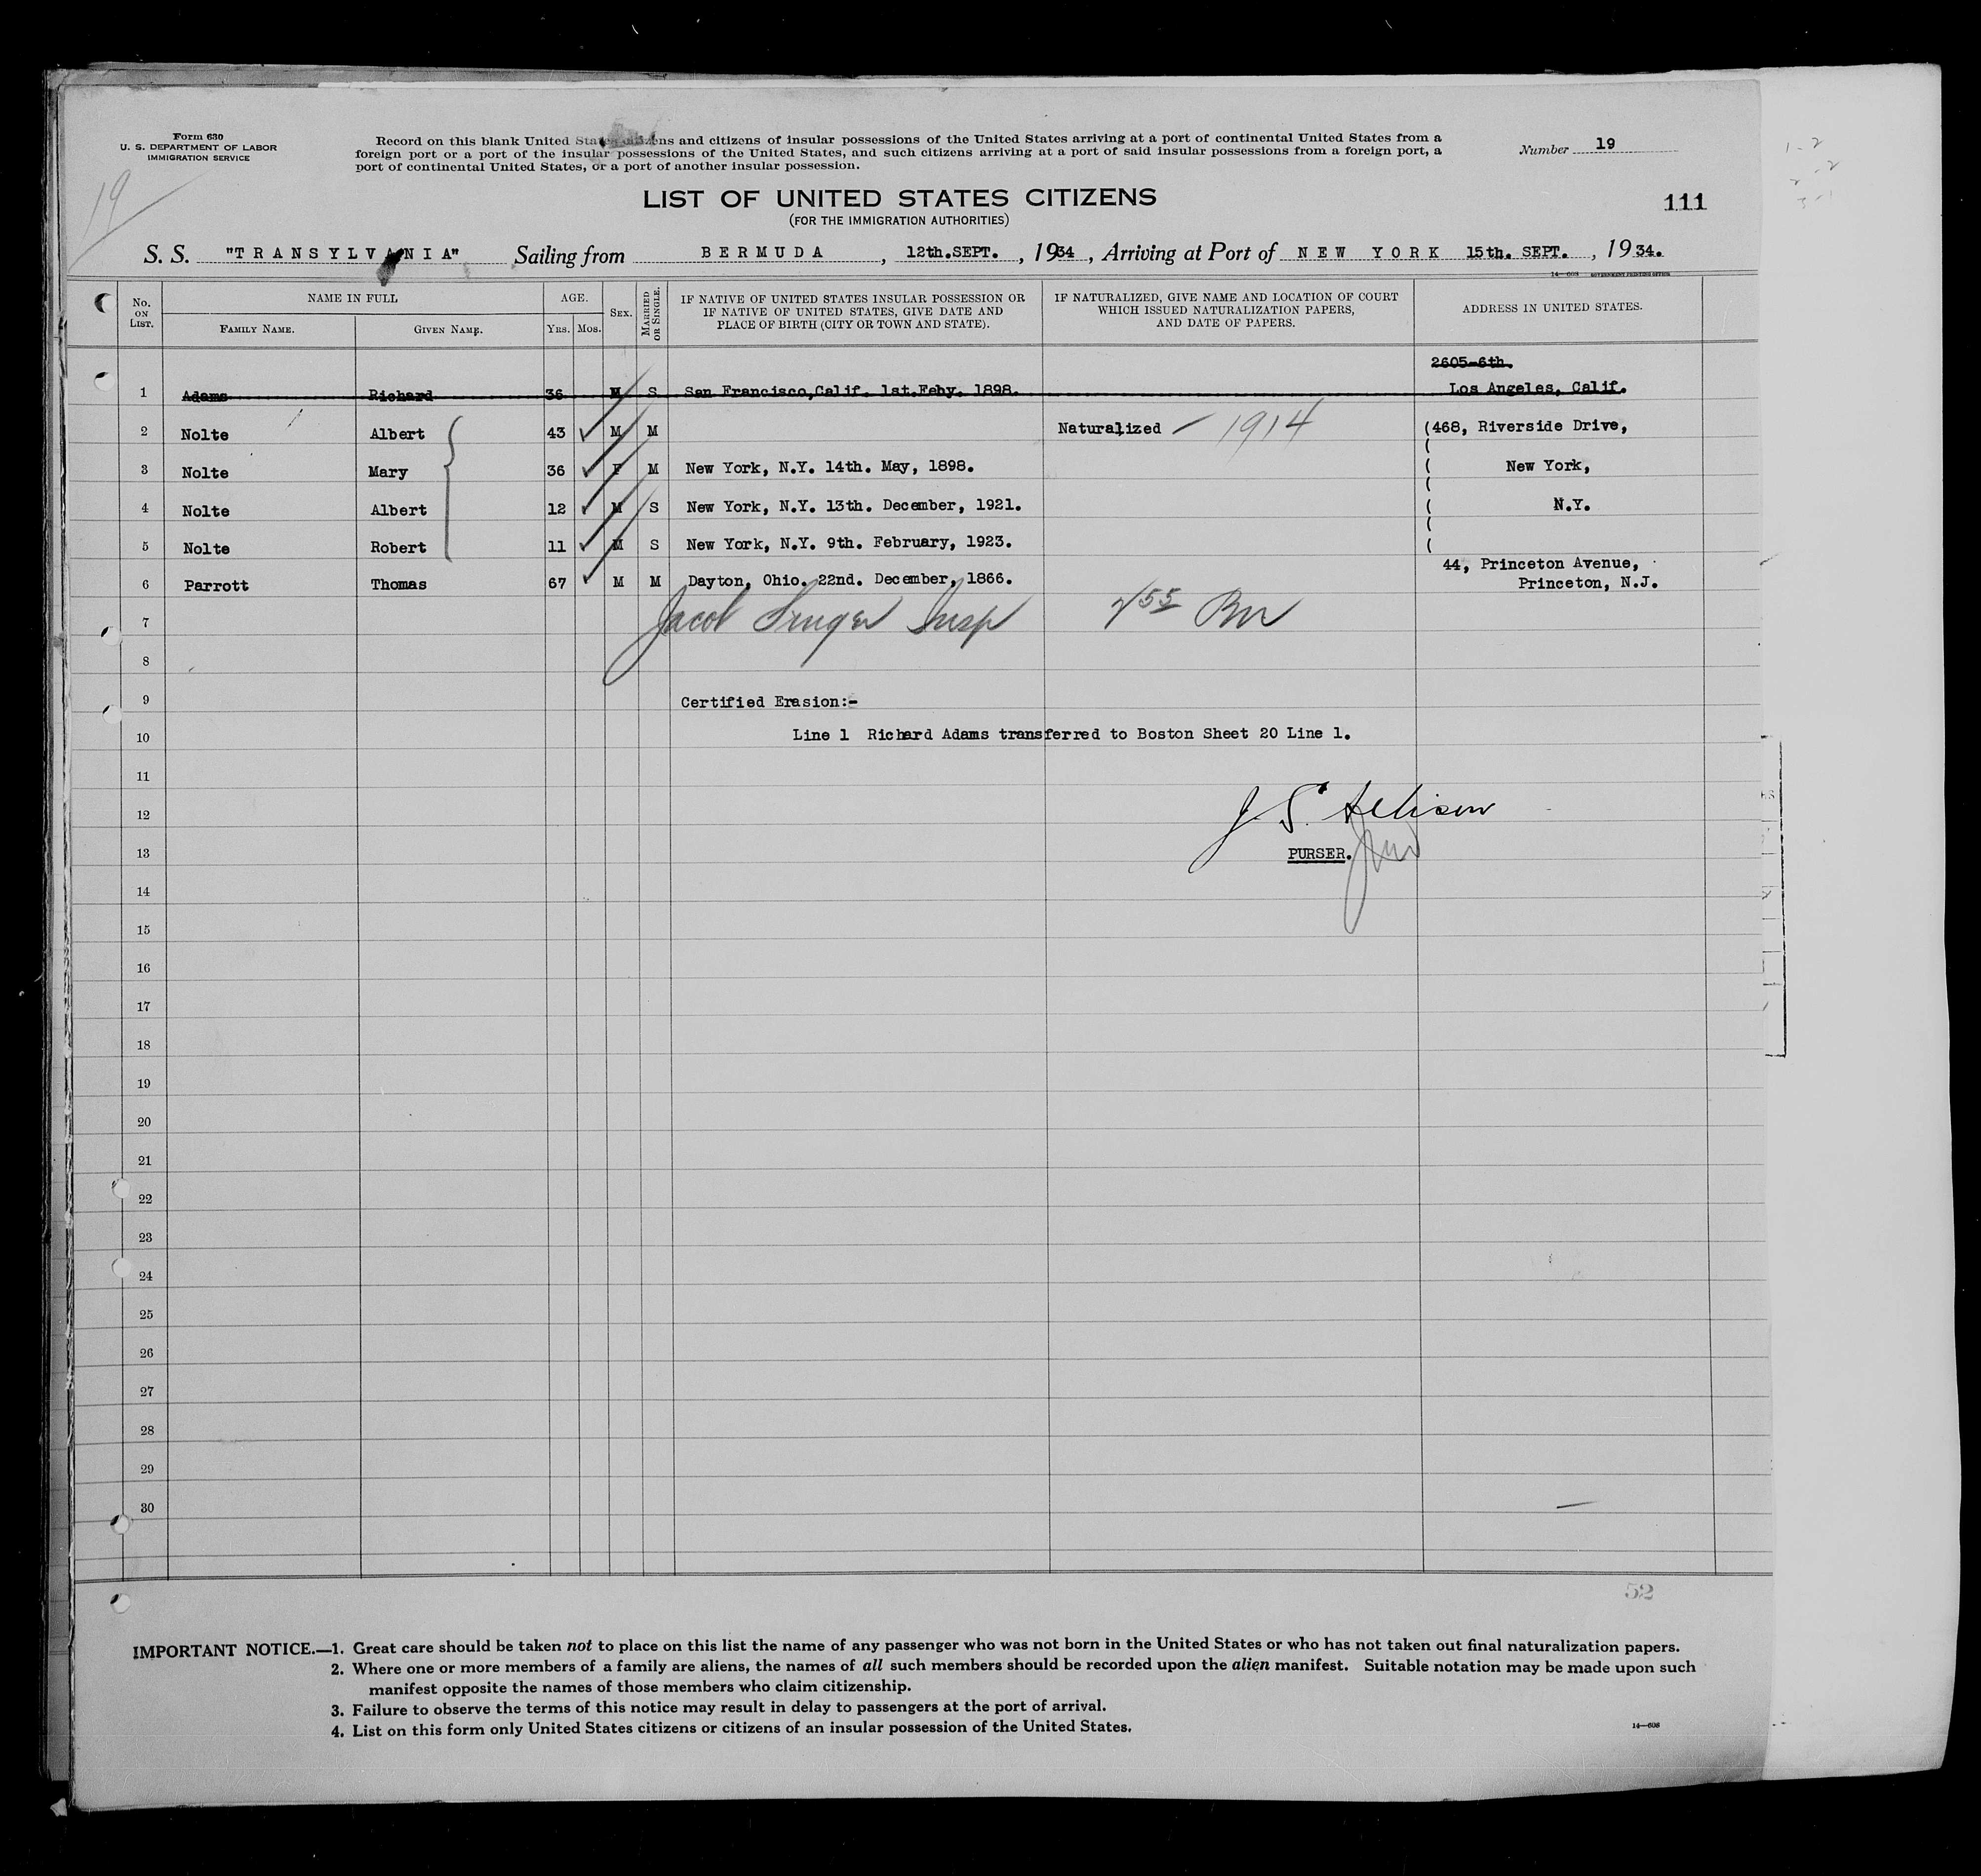 Form 630
U. S. DEPARTMENT OF LABOR
IMMIGRATION SERVICE
19
Record on this blank United States citizens and citizens of insular possessions of the United States arriving at a port of continental United States from a
foreign port or a port of the insular possessions of the United States, and such citizens arriving at a port of said insular possessions from a foreign port, a
port of continental United States, or a port of another insular possession.
Number 19
111
LIST OF UNITED STATES CITIZENS
(FOR THE IMMIGRATION AUTHORITIES)
S. S. "TRANSYLVANIA" Sailing from BERMUDA, 12th.SEPT., 1934, Arriving at Port of NEW YORK 15th. SEPT., 1934.
14—608 GOVERNMENT PRINTING OFFICE
No. ON LIST. NAME IN FULL AGE. SEX. MARRIED OR SINGLE. IF NATIVE OF UNITED STATES INSULAR POSSESSION OR IF NATIVE OF UNITED STATES, GIVE DATE AND PLACE OF BIRTH (CITY OR TOWN AND STATE). IF NATURALIZED, GIVE NAME AND LOCATION OF COURT WHICH ISSUED NATURALIZATION PAPERS, AND DATE OF PAPERS. ADDRESS IN UNITED STATES.
FAMILY NAME. GIVEN NAME. YRS. MOS.
2605-6th.
1 Adams Richard 36 M S San Francisco,Calif. 1st.Feby. 1898. Los Angeles, Calif.
2 Nolte Albert 43 ✓ M M Naturalized — 1914 (468, Riverside Drive,
3 Nolte Mary 36 ✓ F M New York, N.Y. 14th. May, 1898. ( New York,
4 Nolte Albert 12 ✓ M S New York, N.Y. 13th. December, 1921. ( N.Y.
5 Nolte Robert 11 ✓ M S New York, N.Y. 9th. February, 1923. (
44, Princeton Avenue,
6 Parrott Thomas 67 ✓ M M Dayton, Ohio. 22nd. December, 1866. Princeton, N.J.
7 Jacob Insp
8
9 Certified Erasion:-
10 Line 1 Richard Adams transferred to Boston Sheet 20 Line 1.
11
12 J. S. Allison
13 PURSER.
14
15
16
17
18
19
20
21
22
23
24
25
26
27
28
29
30
52
IMPORTANT NOTICE.—1. Great care should be taken not to place on this list the name of any passenger who was not born in the United States or who has not taken out final naturalization papers.
2. Where one or more members of a family are aliens, the names of all such members should be recorded upon the alien manifest. Suitable notation may be made upon such
manifest opposite the names of those members who claim citizenship.
3. Failure to observe the terms of this notice may result in delay to passengers at the port of arrival.
4. List on this form only United States citizens or citizens of an insular possession of the United States.
14—608